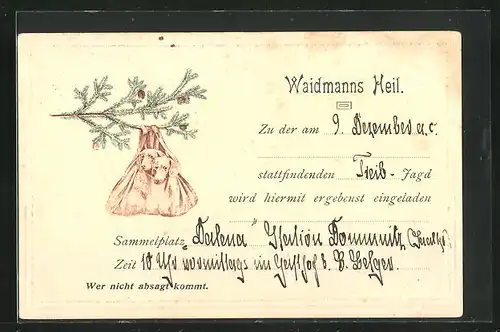 Waidmanns Heil.
Zu der am 9. Dezember a.c.
stattfindenden Treib - Jagd
wird hiermit ergebenst eingeladen
Sammelplatz „Dalena" Station Dommnitz
Zeit 10 Uhr vormittags im Gasthof b.
Wer nicht absagt kommt.